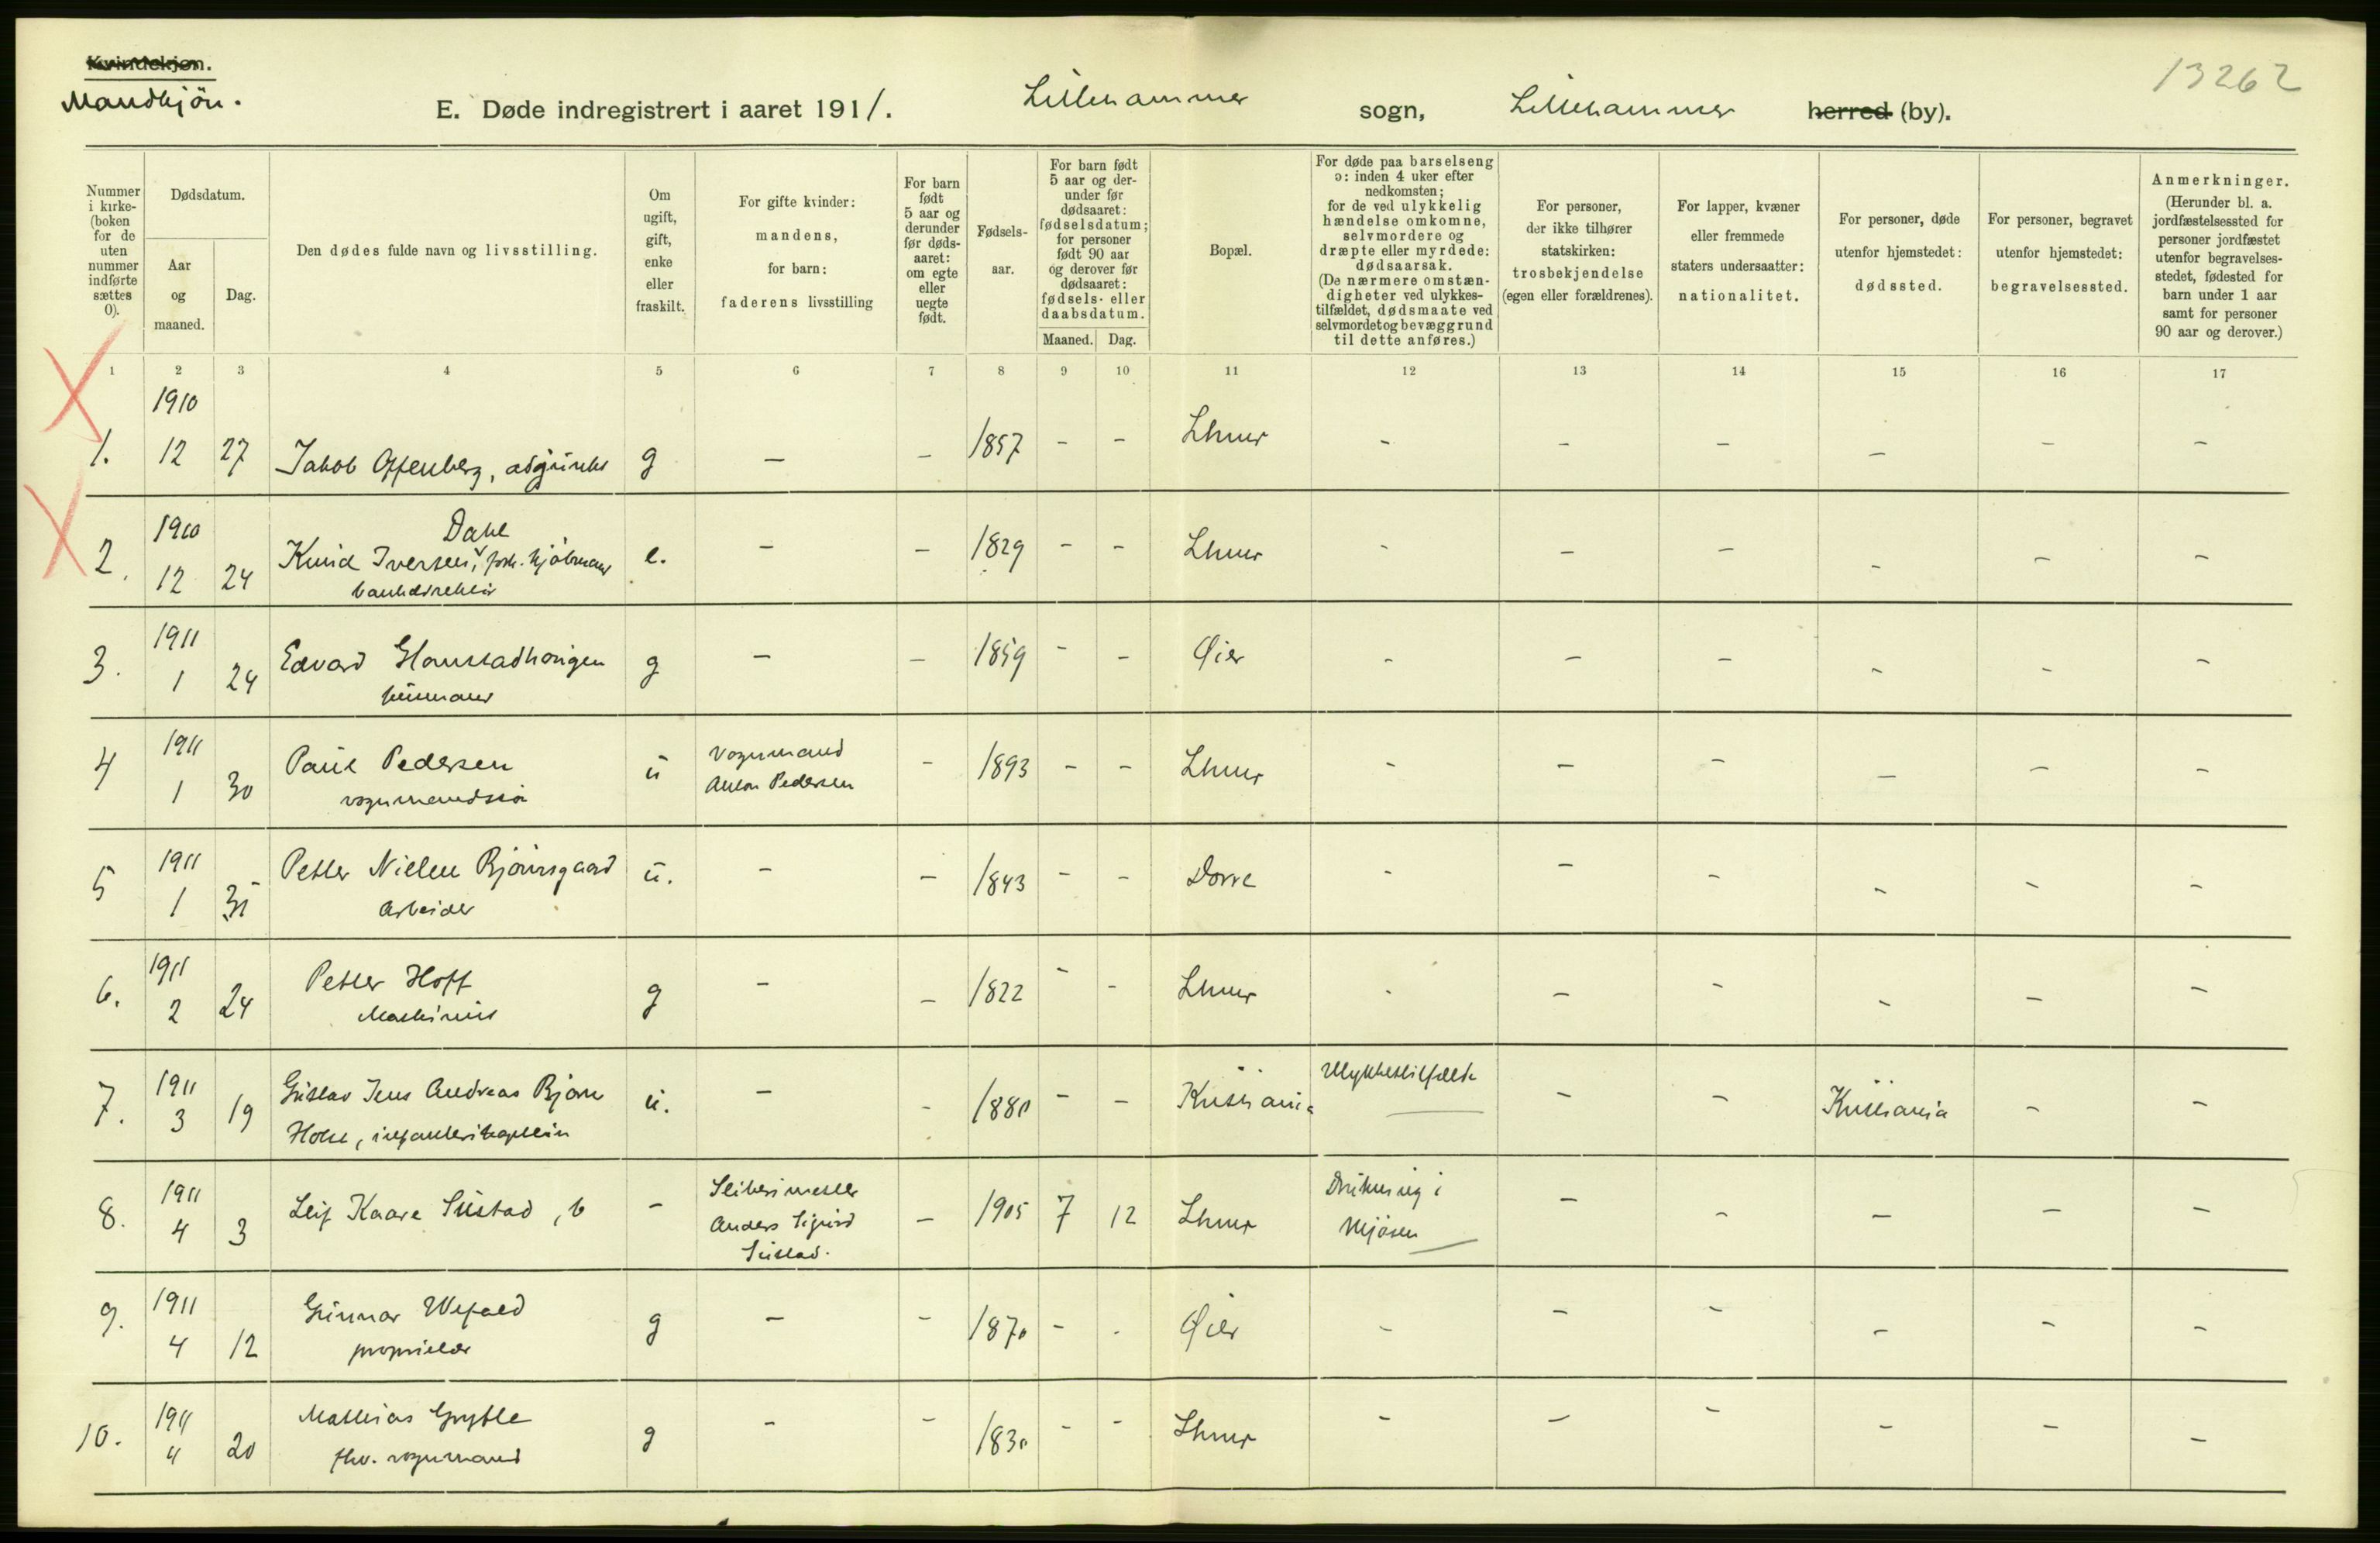 Kvindekjøn.
Mandkjön.
13262
E. Døde indregistrert i aaret 1911. Lillehammer sogn, Lillehammer herred (by).
Nummer i kirke-(boken for de uten nummer indførte sættes 0).
Dødsdatum.
Aar og maaned.
Dag.
Den dødes fulde navn og livsstilling.
Om ugift, gift, enke eller fraskilt.
For gifte kvinder: mandens, for barn: faderens livsstilling
For barn født 5 aar og derunder før dødsaaret: om egte eller uegte født.
Fødselsaar.
For barn født 5 aar og derunder før dødsaaret: fødselsdatum; for personer født 90 aar og derover før dødsaaret: fødsels- eller daabsdatum.
Maaned. Dag.
Bopæl.
For døde paa barselseng ɔ: inden 4 uker efter nedkomsten; for de ved ulykkelig hændelse omkomne, selvmordere og dræpte eller myrdede: dødsaarsak. (De nærmere omstændigheter ved ulykkestilfældet, dødsmaate ved selvmordet og bevæggrund til dette anføres.)
For personer, der ikke tilhører statskirken: trosbekjendelse (egen eller forældrenes).
For lapper, kvæner eller fremmede staters undersaatter: nationalitet.
For personer, døde utenfor hjemstedet: dødssted.
For personer, begravet utenfor hjemstedet: begravelsessted.
Anmerkninger. (Herunder bl. a. jordfæstelsessted for personer jordfæstet utenfor begravelsesstedet, fødested for barn under 1 aar samt for personer 90 aar og derover.)
1 2 3 4 5 6 7 8 9 10 11 12 13 14 15 16 17
1910
1. 12 27 Jakob Offenberg, adjunkt g — — 1857 - - Lhmr - - - - - -
1910 Dahl
2. 12 24 Knud Iversen, forh. kjøbmand e. - - 1829 - - Lhmr - - - - - -
bankdirektör
1911
3. 1 24 Edvard Glomstadhaugen g - - 1859 - - Øier - - - - - -
husmand
1911
4 1 30 Paul Pedersen ŭ Vognmand - 1893 - - Lhmr - - - - - -
vognmandssön Anton Pedersen
1911
5 1 31 Petter Nielsen Bjørnsgaard ŭ. - - 1843 - - Dovre - - - - - -
Arbeider
1911
6. 2 24 Petter Hoff g - - 1822 - - Lhmr - - - - - -
Maskinist
1911
7. 3 19 Gustav Jens Andreas Bjørn ŭ. - - 1880 - - Kristiania Ulykkestilfælde - - Kristiania - -
Holst, infanterikaptein
1911
8. 4 3 Leif Kaare Sustad, b - Sliberimester - 1905 7 12 Lhmr Drukning i - - - - -
Anders Sigurd Mjösen
Sustad.
1911
9. 4 12 Gunnar Wefald g - - 1870 - - Øier - - - - - -
proprietær
1911
10. 4 20 Mathias Grytle g - - 1830 - - Lhmr - - - - - -
fhv. vognmand